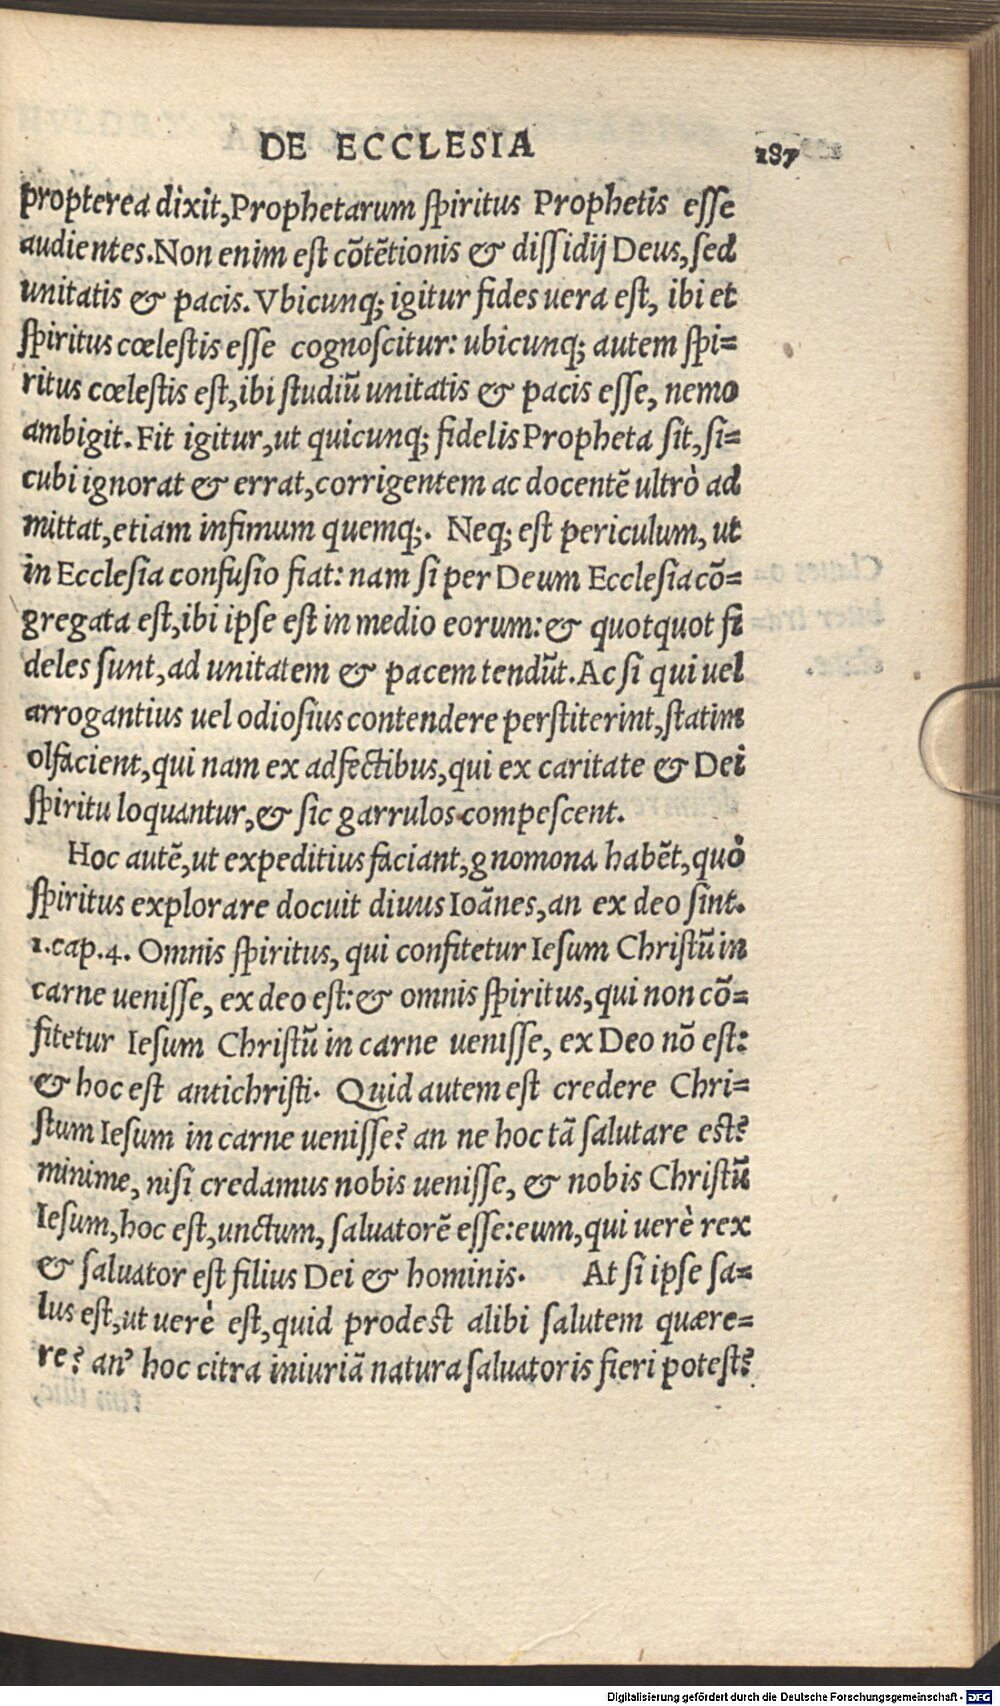 DE ECCLESIA 187
propterea dixit, Prophetarum ſpiritus Prophetis eſſe
audientes. Non enim eſt cõtẽtionis & diſſidij Deus, ſed
unitatis & pacis. Vbicunq; igitur fides uera eſt, ibi et
ſpiritus cœleſtis eſſe cognoſcitur: ubicunq; autem ſpi=
ritus cœleſtis eſt, ibi ſtudiũ unitatis & pacis eſſe, nemo
ambigit. Fit igitur, ut quicunq; fidelis Propheta ſit, ſi=
cubi ignorat & errat, corrigentem ac docentẽ ultrò ad
mittat, etiam infimum quemq;. Neq; eſt periculum, ut
in Eccleſia confuſio fiat: nam ſi per Deum Eccleſia cõ=
gregata eſt, ibi ipſe eſt in medio eorum: & quotquot fi
deles ſunt, ad unitatem & pacem tendũt. Ac ſi qui uel
arrogantius uel odioſius contendere perſtiterint, ſtatim
olfacient, qui nam ex adfectibus, qui ex caritate & Dei
ſpiritu loquantur, & ſic garrulos compeſcent.
Hoc autẽ, ut expeditius faciant, gnomona habẽt, quò
ſpiritus explorare docuit diuus Ioãnes, an ex deo ſint.
1. cap. 4. Omnis ſpiritus, qui confitetur Ieſum Chriſtũ in
carne ueniſſe, ex deo eſt: & omnis ſpiritus, qui non cõ=
fitetur Ieſum Chriſtũ in carne ueniſſe, ex Deo nõ eſt:
& hoc eſt antichriſti. Quid autem eſt credere Chri=
ſtum Ieſum in carne ueniſſe? an ne hoc tã ſalutare eſt?
minime, niſi credamus nobis ueniſſe, & nobis Chriſtũ
Ieſum, hoc eſt, unctum, ſaluatorẽ eſſe: eum, qui uerè rex
& ſaluator eſt filius Dei & hominis. At ſi ipſe ſa=
lus eſt, ut uerè eſt, quid prodeſt alibi ſalutem quære=
re? an' hoc citra iniuriã natura ſaluatoris fieri poteſt?
Digitalisierung gefördert durch die Deutsche Forschungsgemeinschaft - DFG